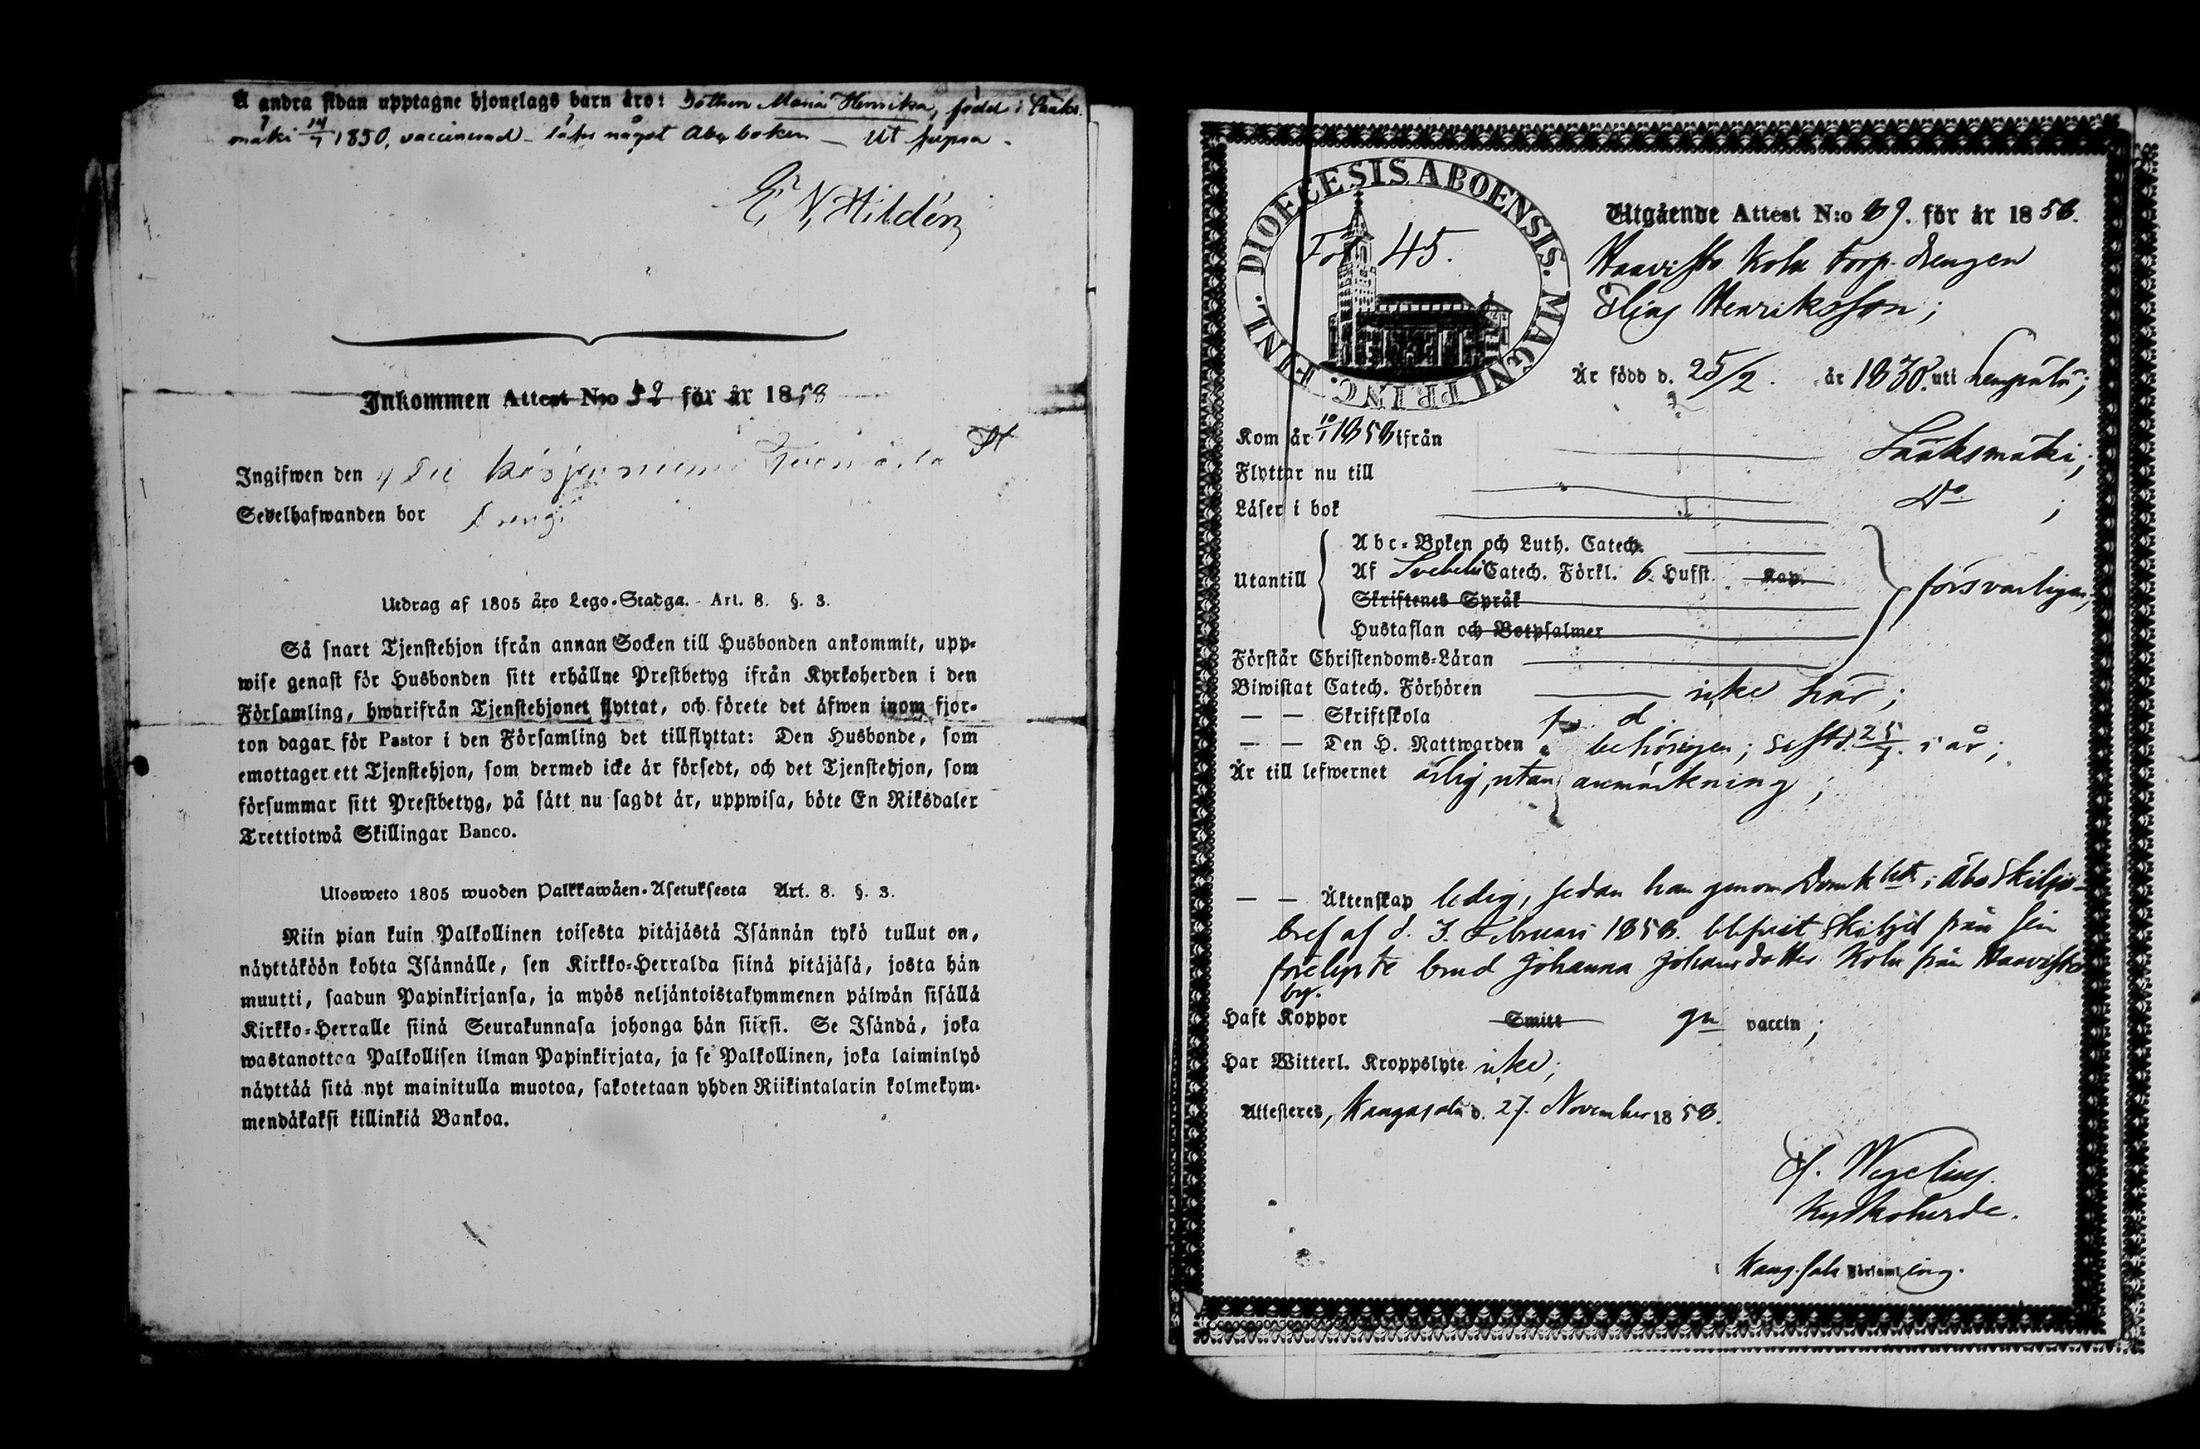 Å andra sidan upptagne hjonelags barn äro: dottren Maria Henrika, född i Sääks-
mäki 14/7 1850, vaccinerad - läser något Abc boken — Ut supra.
E. N. Hildén
Inkommen Attest N:o 52 för år 1858
Ingifwen den
Sedelhafwanden bor
Utdrag af 1805 års Lego-Stadga. Art. 8. §. 3.
Så snart Tjenstehjon ifrån annan Socken till Husbonden ankommit, upp-
wise genast för Husbonden sitt erhållne Prestbetyg ifrån Kyrkoherden i den
Församling, hwarifrån Tjenstehjonet flyttat, och förete det äfwen inom fjor-
ton dagar för Pastor i den Församling det tillflyttat: Den Husbonde, som
emottager ett Tjenstehjon, som dermed icke är försedt, och det Tjenstehjon, som
försummar sitt Prestbetyg, på sätt nu sagdt är, uppwisa, böte En Riksdaler
Trettiotwå Skillingar Banco.
Ulosweto 1805 wuoden Palkkawäen-Asetuksesta Art. 8. §. 3.
Niin pian kuin Palkollinen toisesta pitäjästä Isännän tykö tullut on,
näyttäköön kohta Isännälle, sen Kirkko-Herralda siinä pitäjäsä, josta hän
muutti, saadun Papinkirjansa, ja myös neljäntoistakymmenen päiwän sisällä
Kirkko-Herralle siinä Seurakunnasa johonga hän siirsi. Se Isändä, joka
wastanottaa Palkollisen ilman Papinkirjata, ja se Palkollinen, joka laiminlyö
näyttää sitä nyt mainitulla muotoa, sakotetaan yhden Riikintalarin kolmekym-
mendäkaksi killinkiä Bankoa.
DIOECESIS ABOENSIS. MAGNI PRINC. FINL.
Fol 45.
Utgående Attest N:o 89. för år 1858.
Haavisto Kola torp. drengen
Elias Henriksson;
Är född d. 25/2. år 1830. uti Lempälä;
Kom år 10/1 1858 ifrån
Flyttar nu till Sääksmäki;
Läser i bok Do. ;
Utantill
Abc-Boken och Luth. Catech.
Af Svebelii Catech. Förkl. 6. Hufst. Kap.
Skriftenes Språk
Hustaflan och Botpsalmer
försvarligen;
Förstår Christendoms-Läran
Biwistat Catech. Förhören icke här;
— — Skriftskola
— — Den H. Nattwarden behörigen; sist d. 25/7. i år;
Är till lefwernet ärlig, utan anmärkning;
— — Äktenskap ledig, sedan han genom Domk. i Åbo Skiljo-
bref af d. 3. Februari 1858. blifvit skiljd från sin
förelupte brud Johanna Johansdotter Kola från Haavisto
by.
Haft Koppor Smitt gn vaccin;
Har Witterl. Kroppslyte icke;
Attesteres, Kangasala d. 27. November 1858.
A. Wegelius.
Kyrkoherde.
Kang.sala Församling.